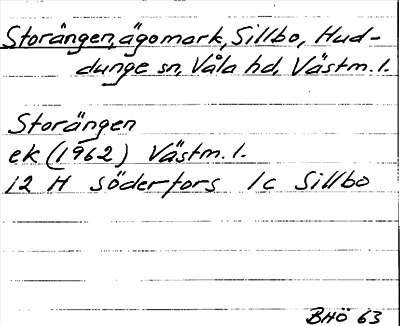 Storängen, ägomark, Sillbo, Hud-
dunge sn, Våla hd, Västm. l.
Storängen
ek (1962) Västm. l.
12 H Söderfors 1c Sillbo
BHÖ 63